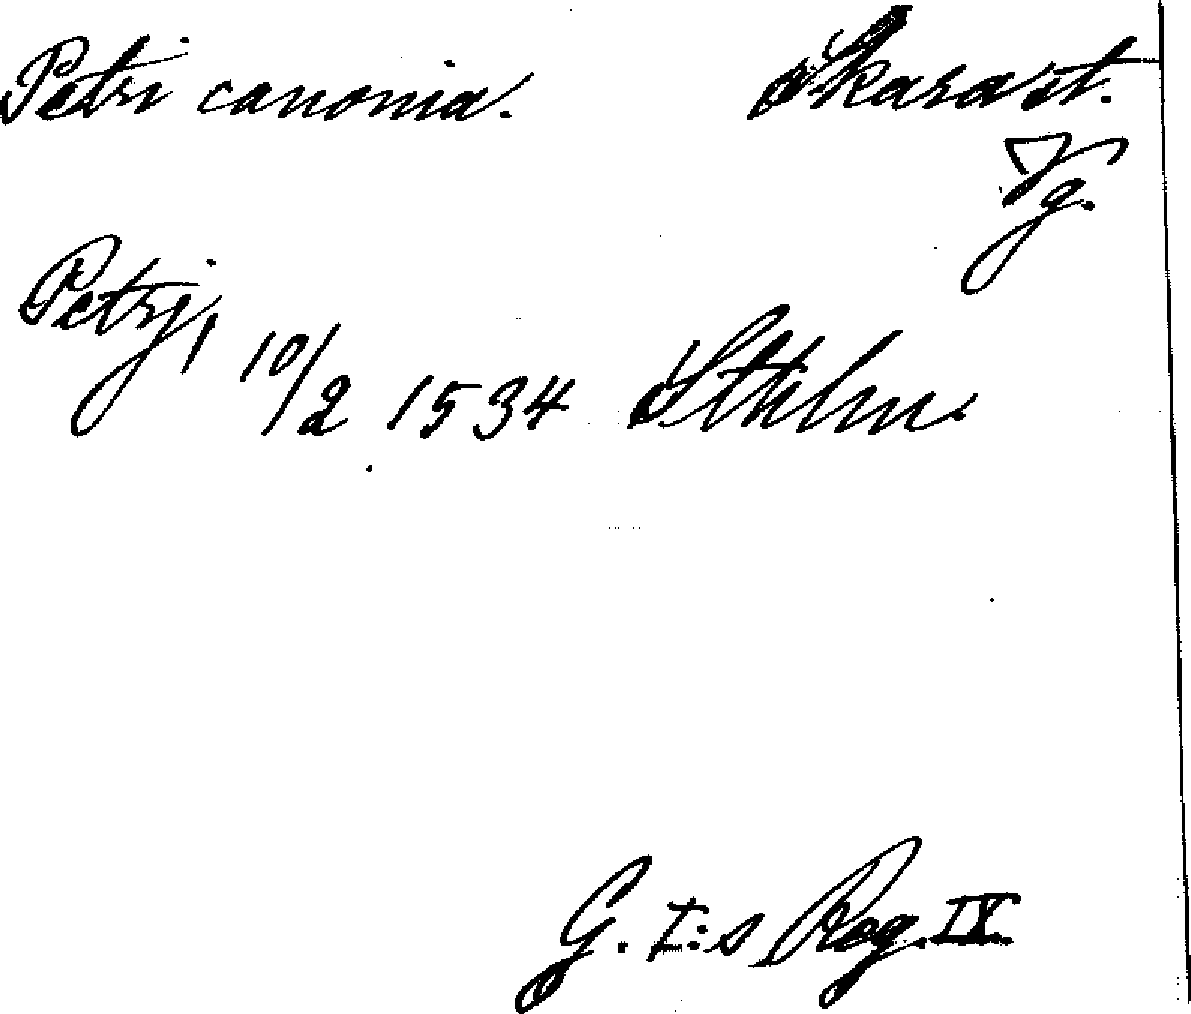 Petri canonia. Skara st.
Vg.
Petrj, 10/2 1534 Sthlm.
G. I:s Reg. IX.